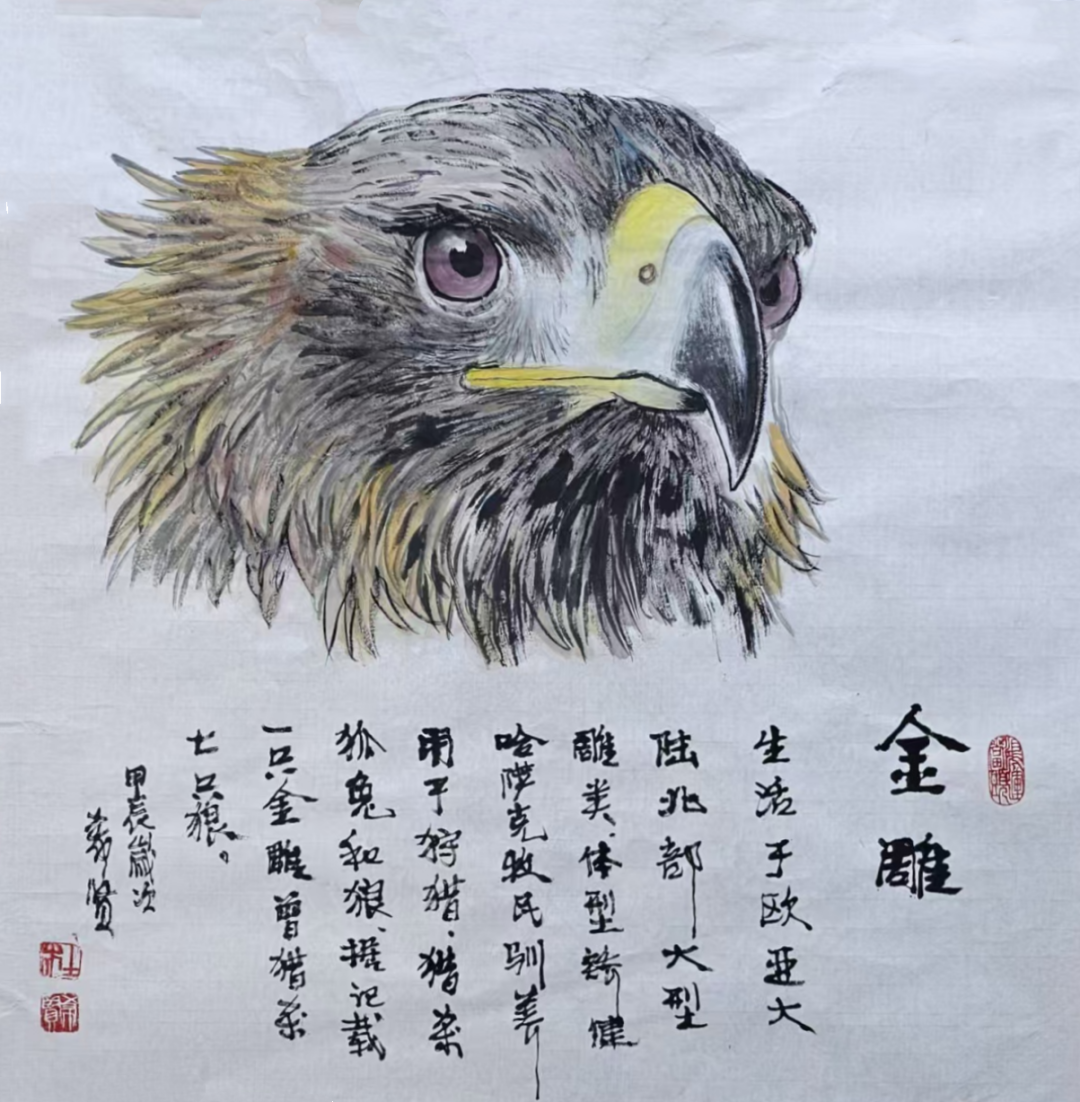 金雕
生活于欧亚大
陆北部大型
雕类、体型矫健
哈萨克牧民驯养
用于狩猎、猎杀
狐兔和狼、据记载
一只金雕曾猎杀
七只狼。
甲辰歲次
贤